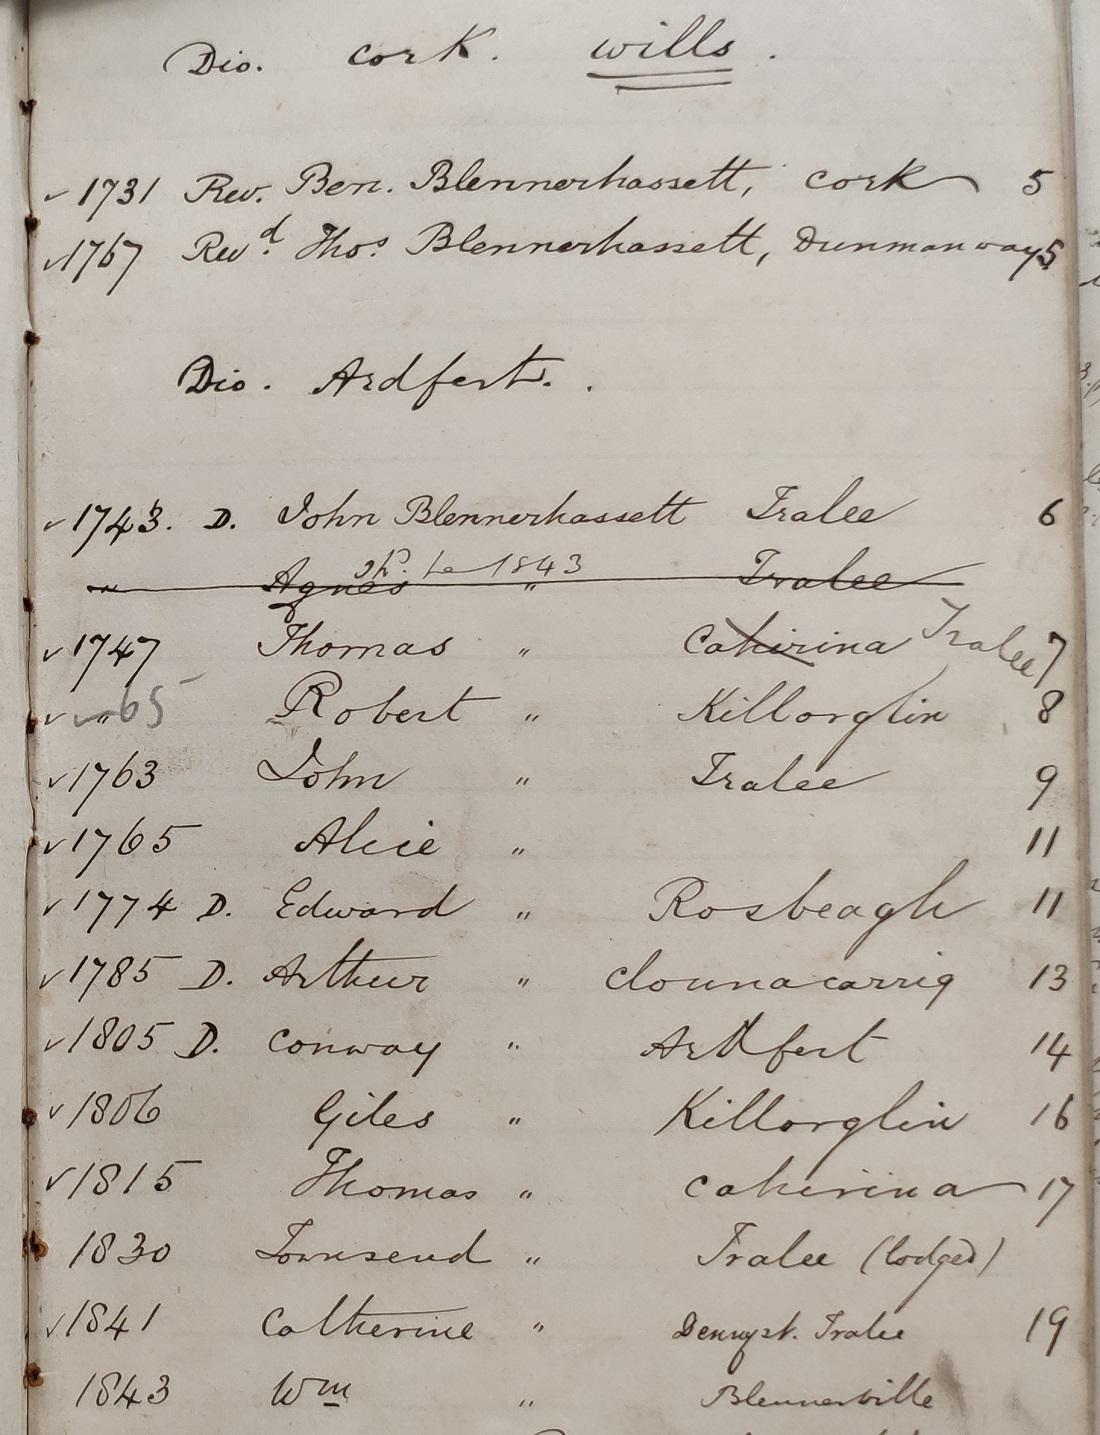 Dio. Cork. Wills.
✓ 1731 Rev. Ben. Blennerhassett, Cork 5
✓ 1767 Revd. Thos. Blennerhassett, Dunmanway 5
Dio. Ardfert.
✓ 1743. D. John Blennerhassett Tralee 6
" Agnes " Tralee
1843
✓ 1747 Thomas " Cahirina Tralee 7
✓ " 65 Robert " Killorglin 8
✓ 1763 John " Tralee 9
✓ 1765 Alice " 11
✓ 1774 D. Edward " Rosbeagh 11
✓ 1785 D. Arthur " Clounacarrig 13
✓ 1805 D. Conway " Ardfert 14
✓ 1806 Giles " Killorglin 16
✓ 1815 Thomas " Cahirina 17
1830 Townsend " Tralee (lodged)
✓ 1841 Catherine " Denny st. Tralee 19
1843 Wm " Blennerville